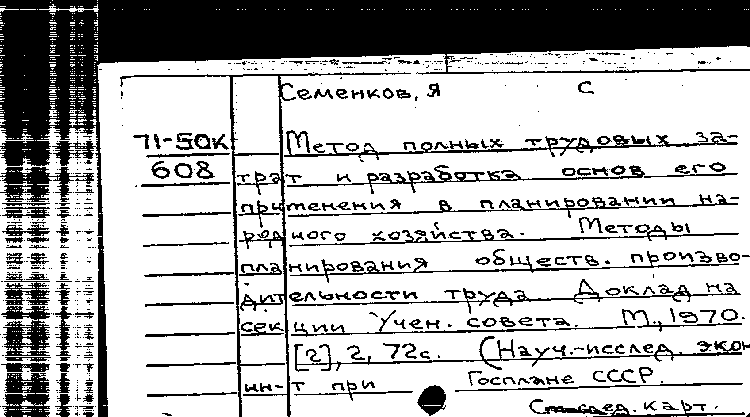 Семенков, Я С
71-50к Метод полных трудовых за-
608 трат и разработка основ его
применения в планировании на-
родного хозяйства. Методы
планирования обществ. произво-
дительности труда. Доклад на
секции Учен. совета. М., 1970.
[2], 2, 72с. (Науч.-исслед. экон
ин-т при Госплане СССР.
карт.